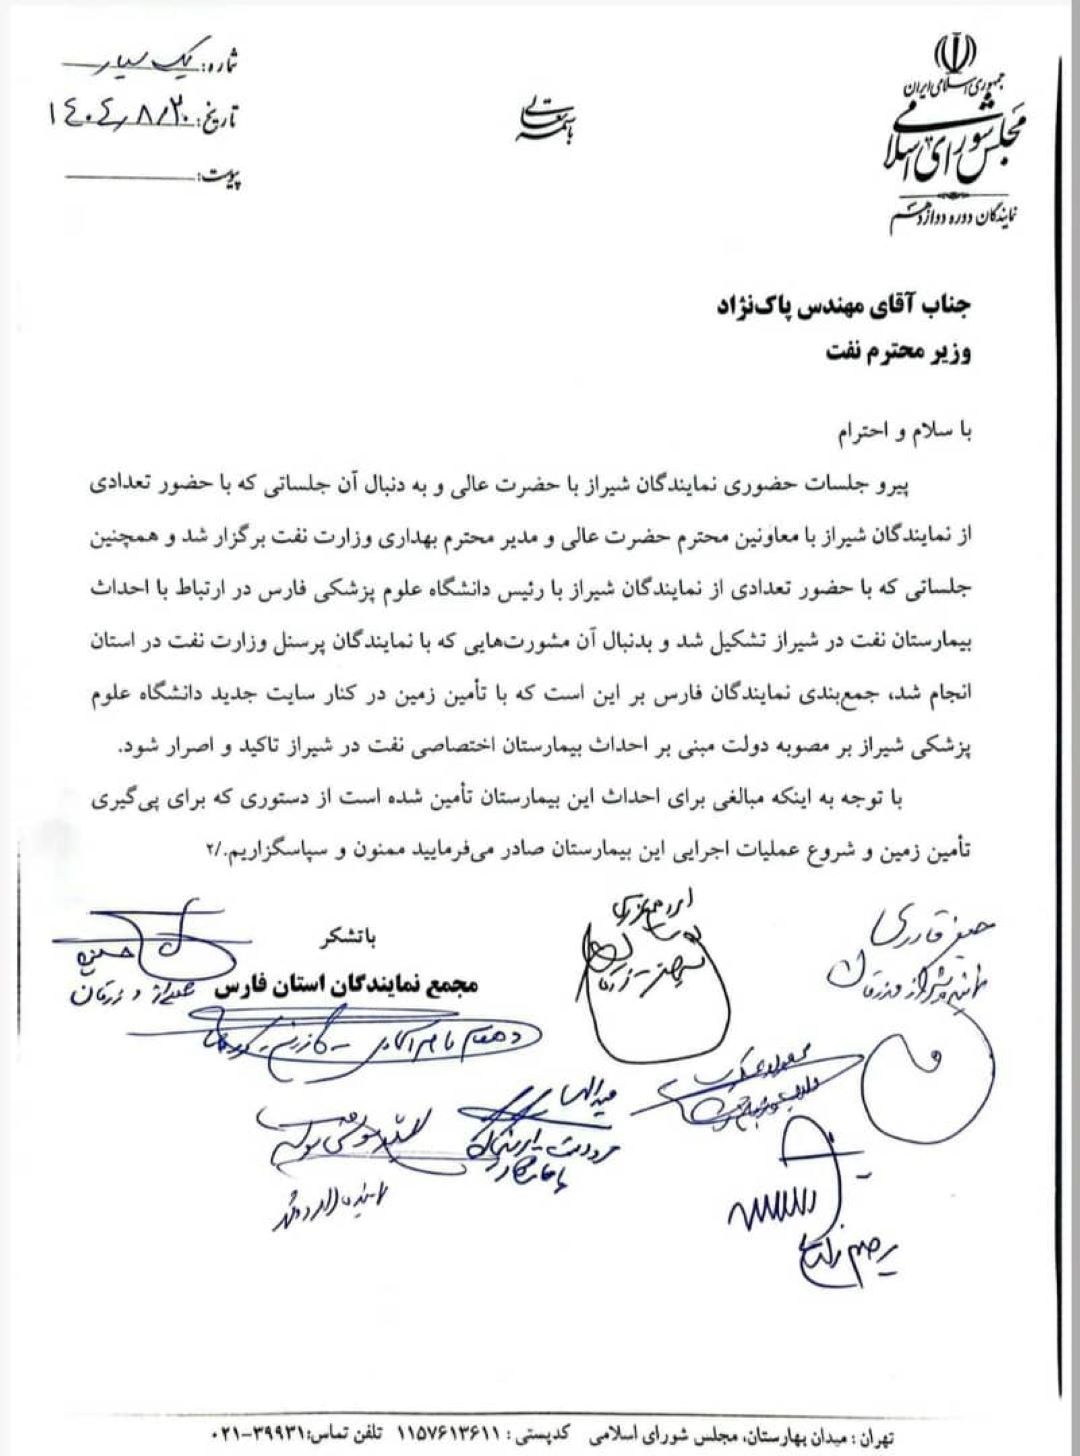 جمهوری اسلامی ایران
مجلس شورای اسلامی
نمایندگان دوره دوازدهم
باسمه تعالی
شماره: یک سیار
تاریخ: ۱۴۰۴/۸/۲۰
پیوست:
جناب آقای مهندس پاک‌نژاد
وزیر محترم نفت
با سلام و احترام
پیرو جلسات حضوری نمایندگان شیراز با حضرت عالی و به دنبال آن جلساتی که با حضور تعدادی
از نمایندگان شیراز با معاونین محترم حضرت عالی و مدیر محترم بهداری وزارت نفت برگزار شد و همچنین
جلساتی که با حضور تعدادی از نمایندگان شیراز با رئیس دانشگاه علوم پزشکی فارس در ارتباط با احداث
بیمارستان نفت در شیراز تشکیل شد و بدنبال آن مشورت‌هایی که با نمایندگان پرسنل وزارت نفت در استان
انجام شد، جمع‌بندی نمایندگان فارس بر این است که با تأمین زمین در کنار سایت جدید دانشگاه علوم
پزشکی شیراز بر مصوبه دولت مبنی بر احداث بیمارستان اختصاصی نفت در شیراز تاکید و اصرار شود.
با توجه به اینکه مبالغی برای احداث این بیمارستان تأمین شده است از دستوری که برای پی‌گیری
تأمین زمین و شروع عملیات اجرایی این بیمارستان صادر می‌فرمایید ممنون و سپاسگزاریم./۲
باتشکر
مجمع نمایندگان استان فارس
جعفر قادری
شیراز و زرقان
تهران : میدان بهارستان، مجلس شورای اسلامی کدپستی : ۱۱۵۷۶۱۳۶۱۱ تلفن تماس:۳۹۹۳۱-۰۲۱